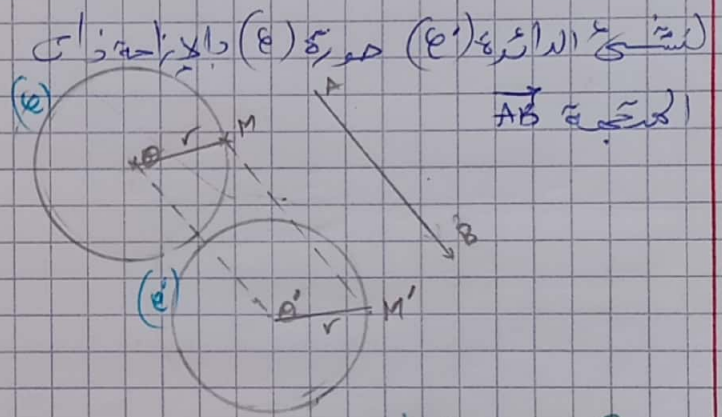 ننشئ الدائرة (C') صورة (C) بالإزاحة ذات
المتجهة AB
(C)
O r M
A
B
(C')
O' r M'